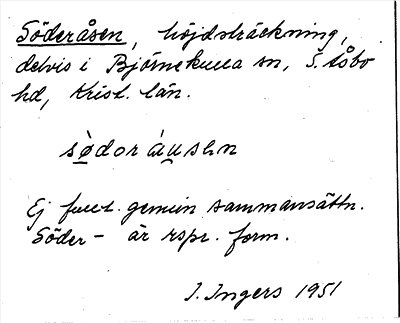 Söderåsen, höjdsträckning,
delvis i Björnekulla sn, S. Åsbo
hd, Krist. län.
sødor áusen
Ej full. genuin sammansättn.
Söder- är rspr. form.
I. Ingers 1951